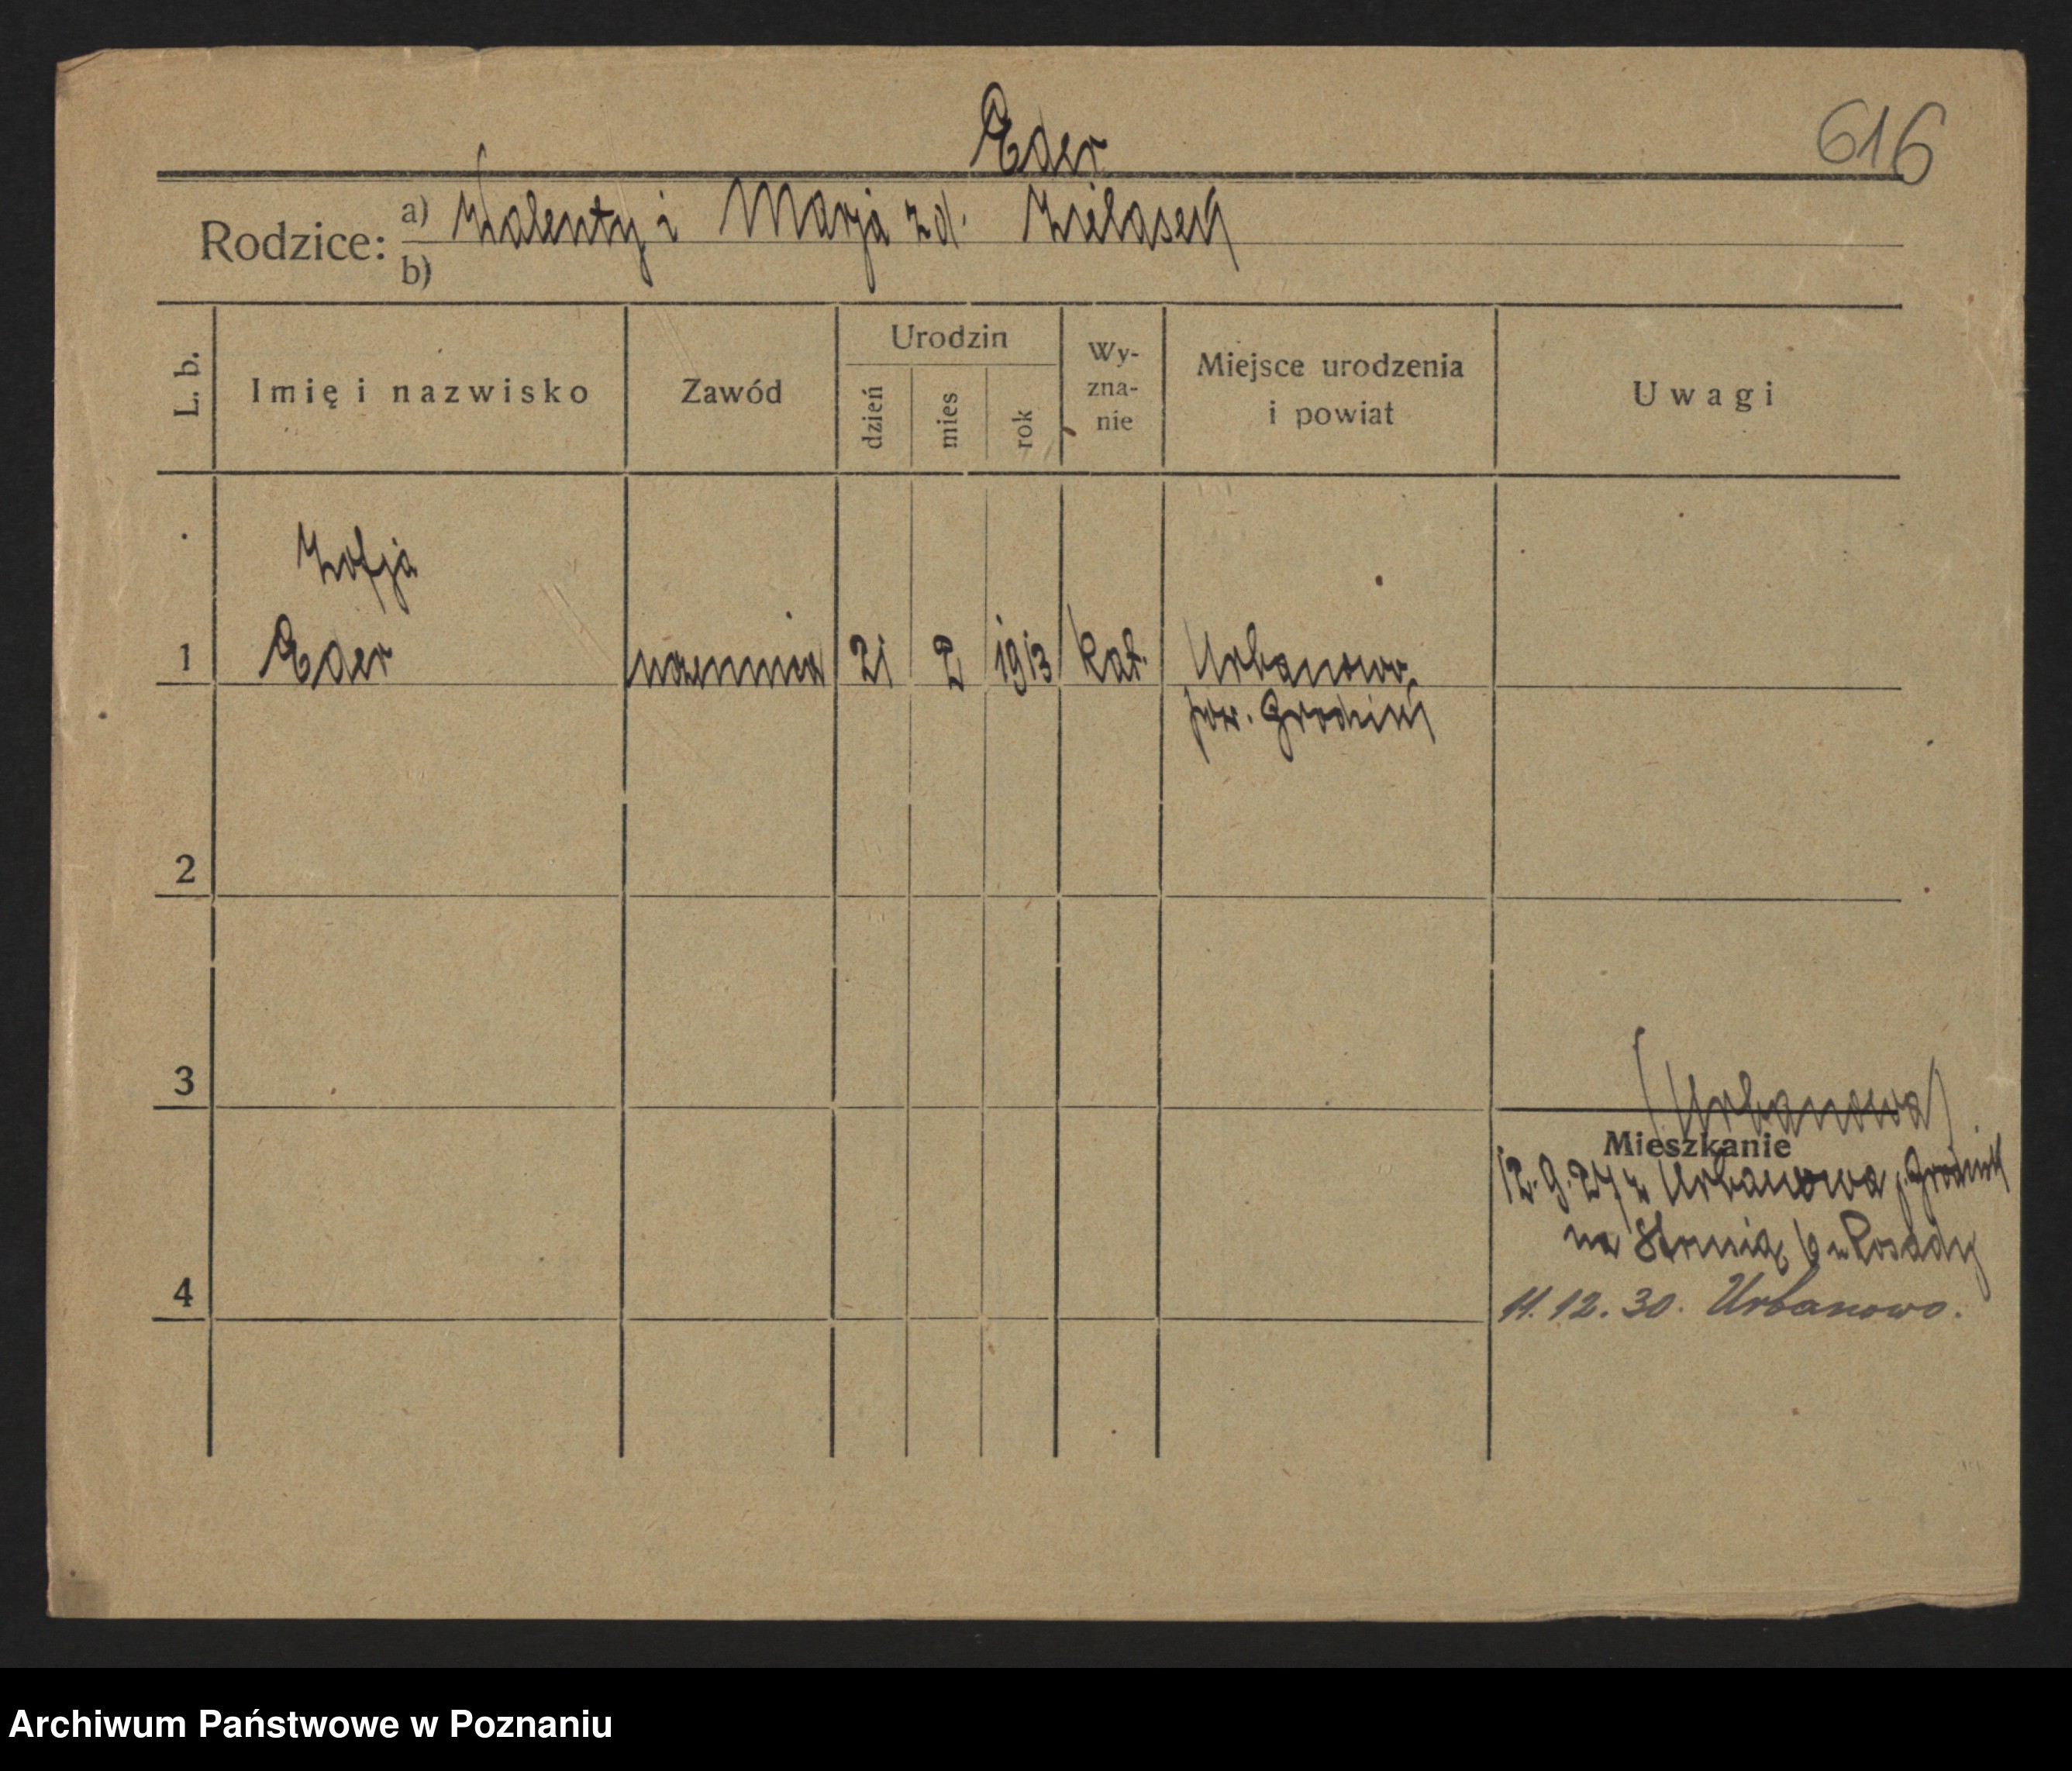 Eder
616
Rodzice:
a) Walenty i Marja zd. Zielasek
b)
L. b.
Imię i nazwisko
Zawód
Urodzin
dzień
mies
rok
Wy-
zna-
nie
Miejsce urodzenia
i powiat
Uwagi
Zofja
1 Eder uczennica 21 2 1913 kat. Urbanowo
pow. Grodzisk
2
3
(Urbanowa)
Mieszkanie
12.9.27 z Urbanowa p. Grodzisk
na 6
4
11.12.30. Urbanowo.
Archiwum Państwowe w Poznaniu